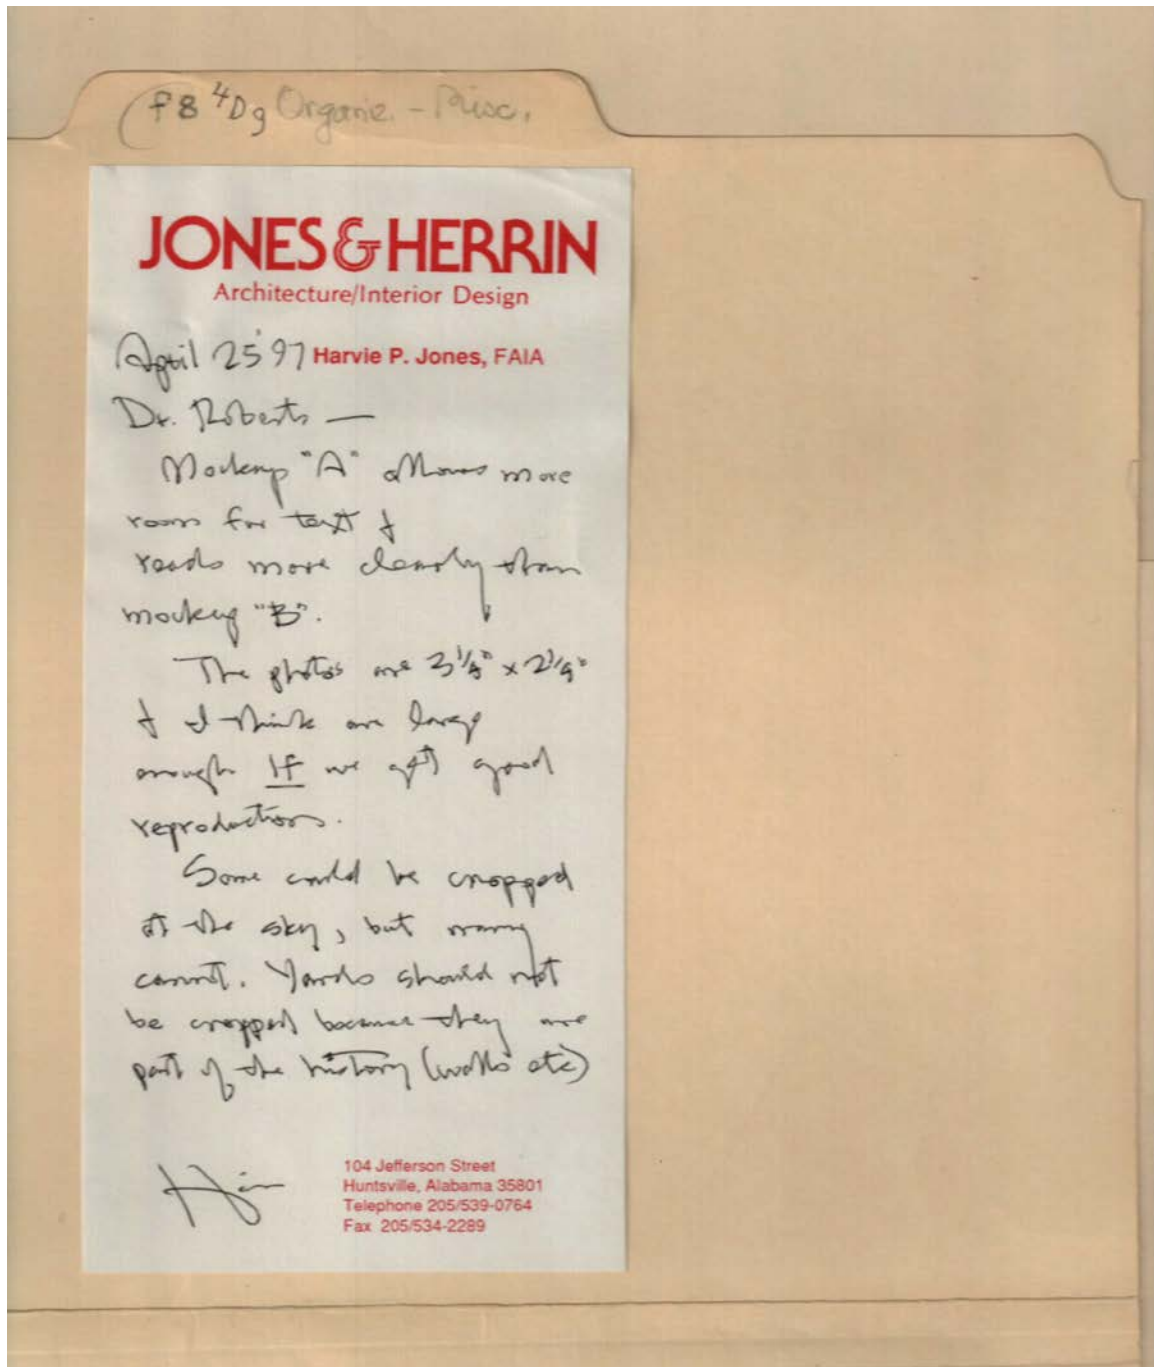 F8 4Dg Organiz. - Misc.
JONES & HERRIN
Architecture/Interior Design
April 25 97 Harvie P. Jones, FAIA
Dr. Roberts —
Mockup "A" allows more
room for text &
reads more clearly than
mockup "B".
The photos are 3 1/8" x 2 1/8"
& I think are large
enough IF we get good
reproductions.
Some could be cropped
at the sky, but many
cannot. Yards should not
be cropped because they are
part of the history (walls etc)
104 Jefferson Street
Huntsville, Alabama 35801
Telephone 205/539-0764
Fax 205/534-2289